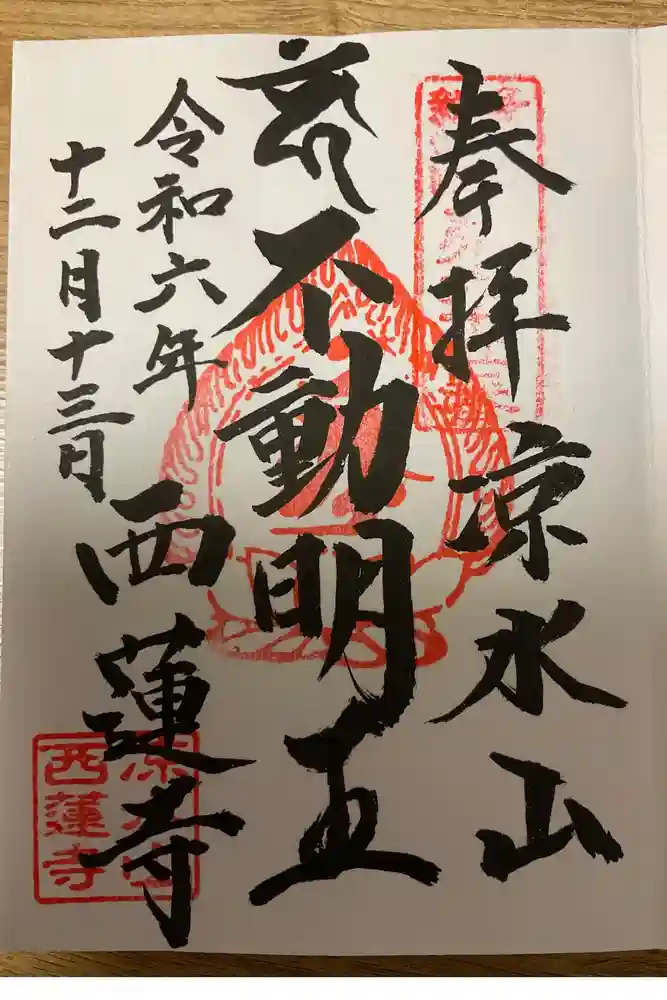 奉拝 凉水山
不動明王
令和六年
十二月十三日
西蓮寺
西蓮寺